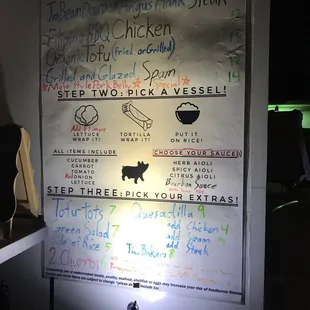 Jim Beam Bourbon Angus Flank Steak
Filipino BBQ Chicken
Organic Tofu (Fried or Grilled)
Grilled and Glazed Spam 14
*Moto Style Pork Belly* *Special*
STEP TWO: PICK A VESSEL!
LETTUCE WRAP IT!
TORTILLA WRAP IT!
PUT IT ON RICE!
ALL ITEMS INCLUDE
CUCUMBER
CARROT
TOMATO
ONION
LETTUCE
CHOOSE YOUR SAUCE!
HERB AIOLI
SPICY AIOLI
CITRUS AIOLI
Bourbon Sauce
STEP THREE: PICK YOUR EXTRAS!
Tofu Tots 7 Quesadilla 9
Green Salad 7 add Chicken 4
Side of Rice 5 add Spam
add Steak
2 Churros